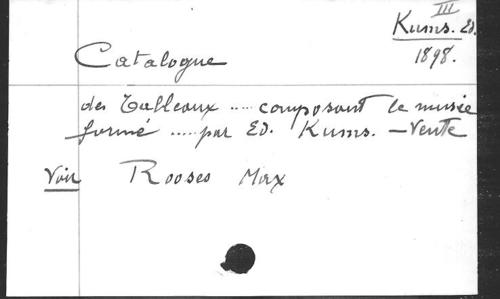 III
Kums. Ed.
1898.
Catalogue
des Tableaux ..... composant le musée
formé ..... par Ed. Kums. — Vente
Voir Rooses Max